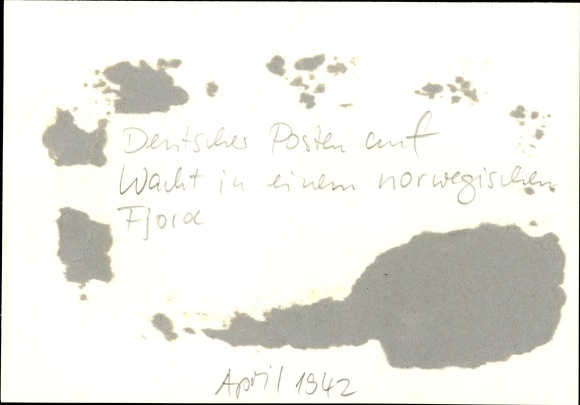 Deutscher Posten auf
Wacht in einem norwegischen
Fjord
April 1942